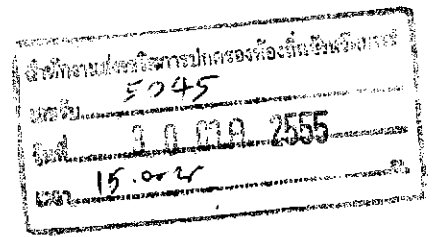 สำนักงานส่งเสริมการปกครองท้องถิ่นจังหวัด
เลขรับ 5045
วันที่ 30 2555
เวลา 15.00 น.